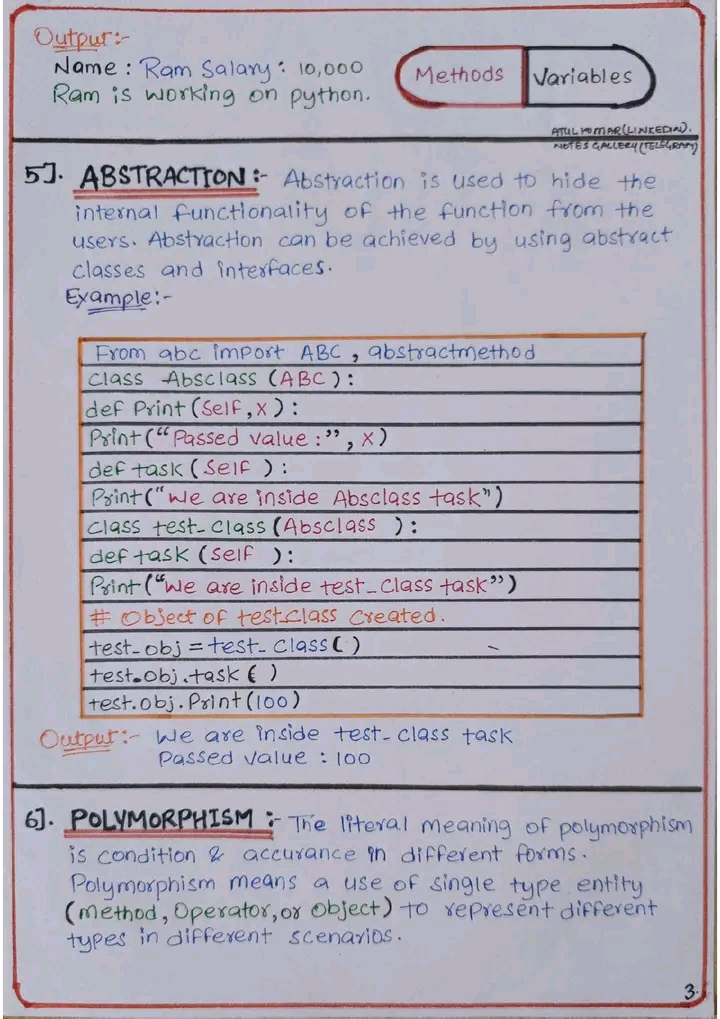 Output:-
Name : Ram Salary : 10,000
Ram is working on python.
Methods Variables
ATUL KUMAR (LINKEDIN).
NOTES GALLERY (TELEGRAM)
5]. ABSTRACTION :- Abstraction is used to hide the
internal functionality of the function from the
users. Abstraction can be achieved by using abstract
classes and interfaces.
Example:-
From abc import ABC , abstractmethod
class Absclass (ABC) :
def Print (Self, X) :
Print ("Passed value :", X)
def task (Self ) :
Print ("We are inside Absclass task")
class test_class (Absclass ) :
def task (self ) :
Print ("We are inside test_class task")
# Object of test_class created.
test_obj = test_class ( )
test.obj.task ( )
test.obj.Print (100)
Output:- We are inside test_class task
Passed value : 100
6]. POLYMORPHISM :- The literal meaning of polymorphism
is condition & accurance in different forms.
Polymorphism means a use of single type entity
(Method, Operator, or Object) to represent different
types in different scenarios.
3.